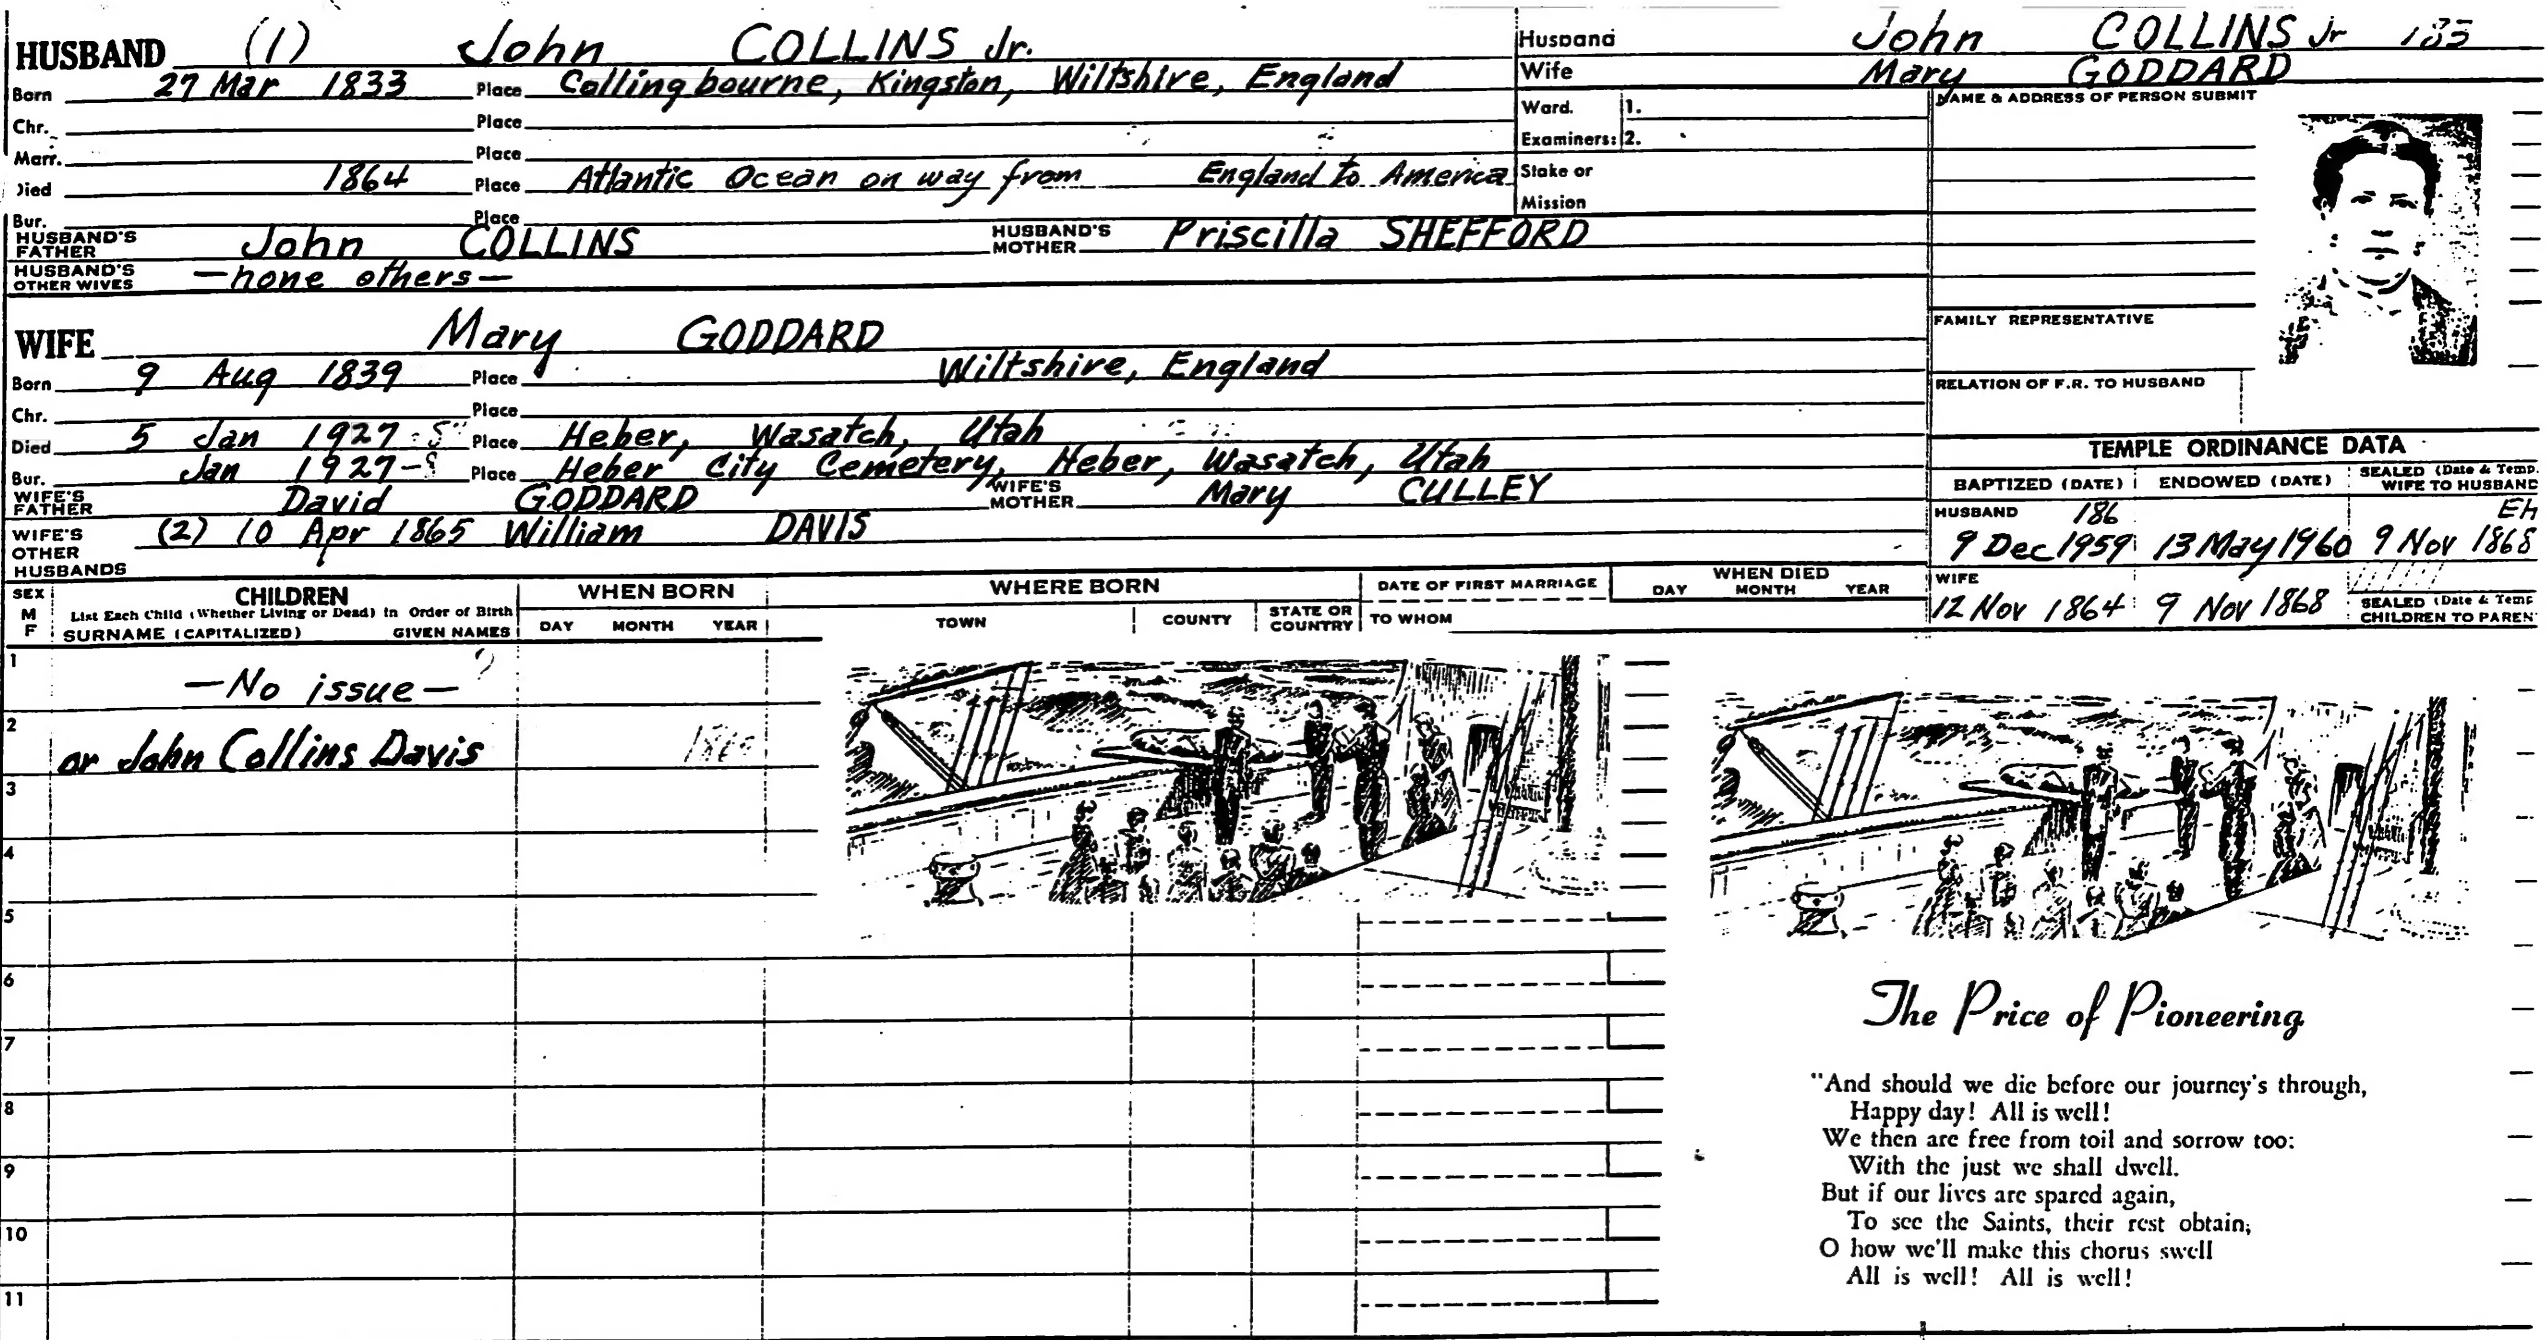 HUSBAND (1) John COLLINS Jr.
Born 27 Mar 1833 Place Collingbourne, Kingston, Wiltshire, England
Chr. Place
Marr. Place
Died 1864 Place Atlantic Ocean on way from England to America
Bur. Place
HUSBAND'S FATHER John COLLINS HUSBAND'S MOTHER Priscilla SHEFFORD
HUSBAND'S OTHER WIVES —none others—
WIFE Mary GODDARD
Born 9 Aug 1839 Place Wiltshire, England
Chr. Place
Died 5 Jan 1927 Place Heber, Wasatch, Utah
Bur. Jan 1927 Place Heber City Cemetery, Heber, Wasatch, Utah
WIFE'S FATHER David GODDARD WIFE'S MOTHER Mary CULLEY
WIFE'S OTHER HUSBANDS (2) 10 Apr 1865 William DAVIS
Husband John COLLINS Jr
Wife Mary GODDARD
Ward. 1.
Examiners: 2.
Stake or
Mission
NAME & ADDRESS OF PERSON SUBMIT
FAMILY REPRESENTATIVE
RELATION OF F.R. TO HUSBAND
TEMPLE ORDINANCE DATA
BAPTIZED (DATE) ENDOWED (DATE) SEALED (Date & Temp. WIFE TO HUSBAND
HUSBAND 186 EH
9 Dec 1959 13 May 1960 9 Nov 1868
WIFE
12 Nov 1864 9 Nov 1868 SEALED (Date & Temp CHILDREN TO PAREN
SEX M F CHILDREN WHEN BORN WHERE BORN DATE OF FIRST MARRIAGE WHEN DIED
List Each Child (Whether Living or Dead) in Order of Birth
SURNAME (CAPITALIZED) GIVEN NAMES DAY MONTH YEAR TOWN COUNTY STATE OR COUNTRY TO WHOM DAY MONTH YEAR
1 —No issue—
2 or John Collins Davis
3
4
5
6
7
8
9
10
11
The Price of Pioneering
"And should we die before our journey's through,
Happy day! All is well!
We then are free from toil and sorrow too:
With the just we shall dwell.
But if our lives are spared again,
To see the Saints, their rest obtain;
O how we'll make this chorus swell
All is well! All is well!